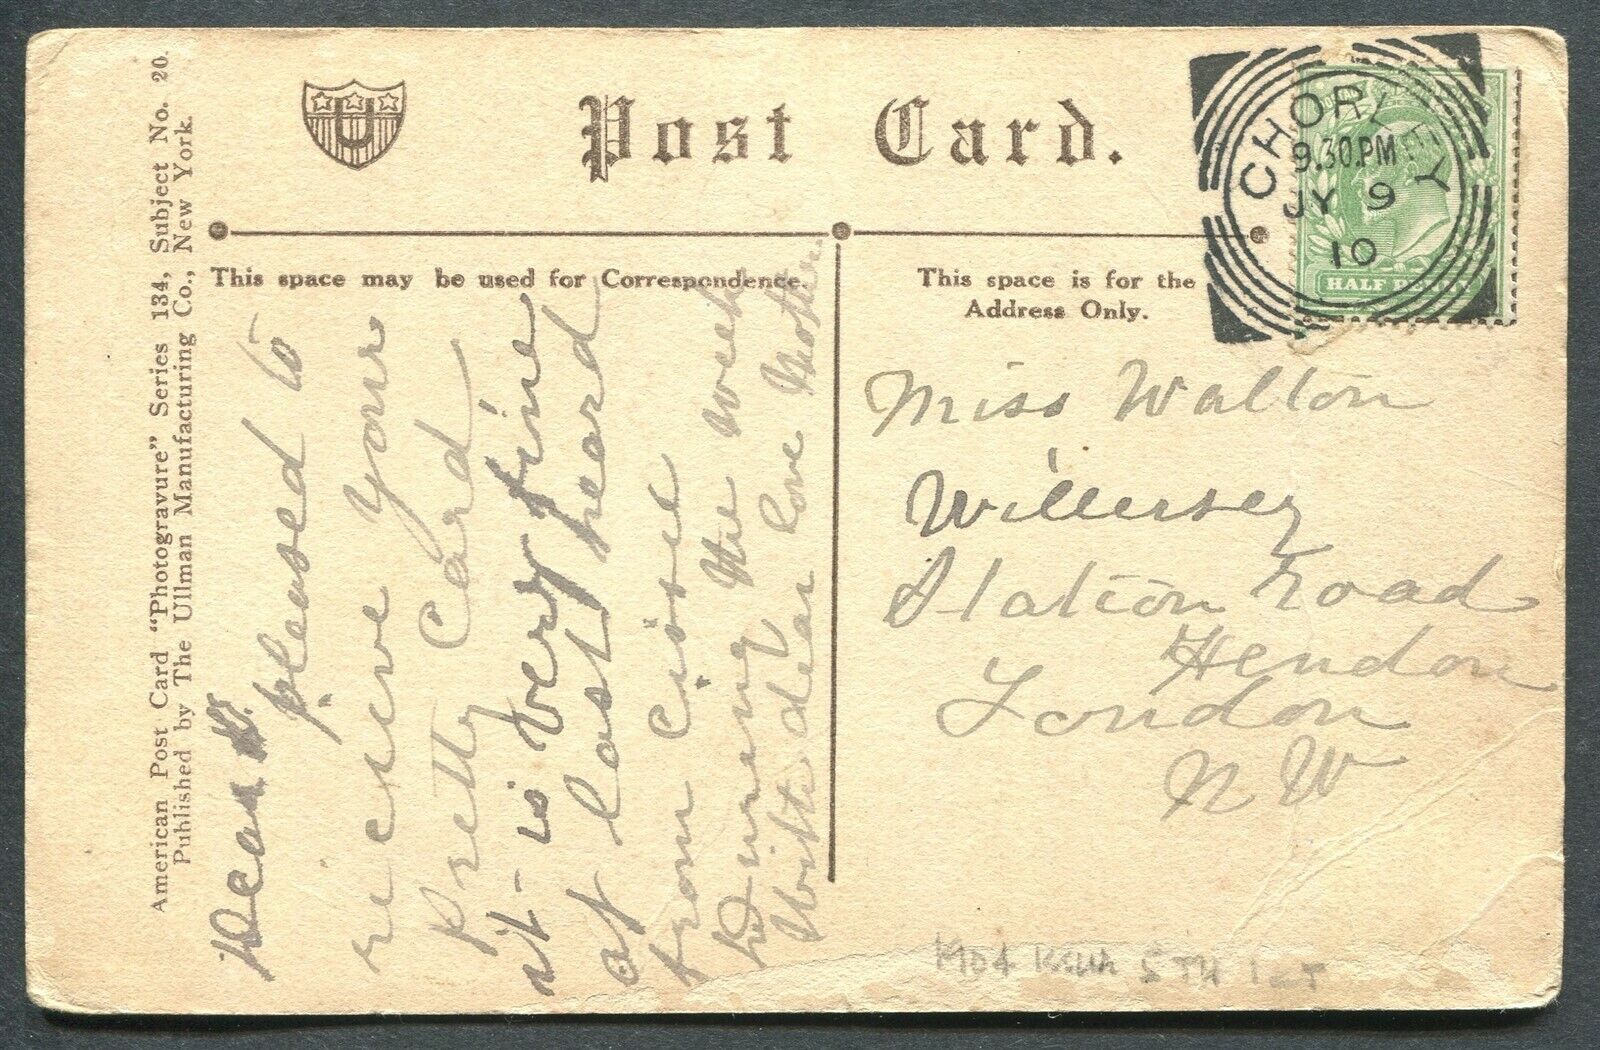 American Post Card "Photogravure" Series 134, Subject No. 20.
Published by The Ullman Manufacturing Co., New York.
U
Post Card.
This space may be used for Correspondence.
This space is for the
Address Only.
CHORLEY
9.30.PM
JY 9
10
HALF PENNY
Dear W.
pleased to
recieve your
Pretty Card
it is very fine
at last heard
from Cissie
During the week
With dear love Mother.
Miss Walton
Willersey
Station Road
Hendon
London
N W
1904 ISSUE 5TH